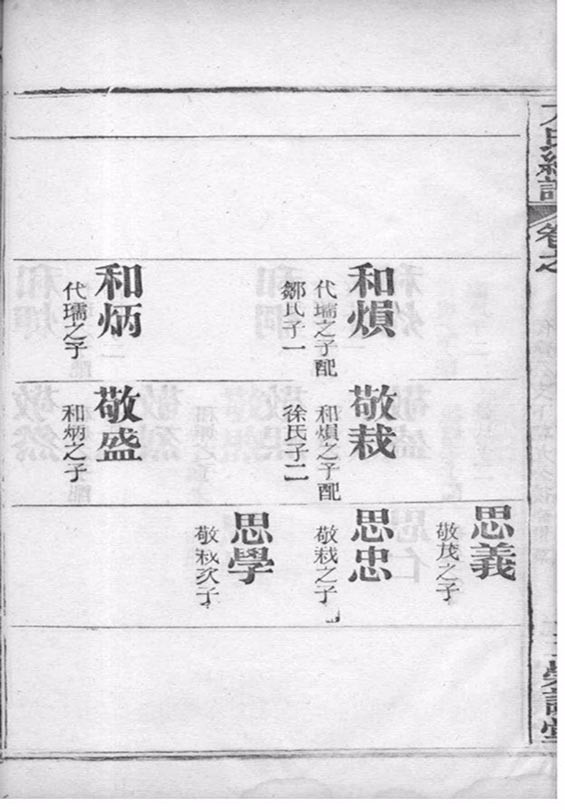 氏經譜
卷之
思義
敬茂之子
和熉
代瓀之子配
鄒氏子一
敬栽
和熉之子配
徐氏子二
思忠
敬栽之子
思學
敬栽次子
和炳
代瓀之子
敬盛
和炳之子